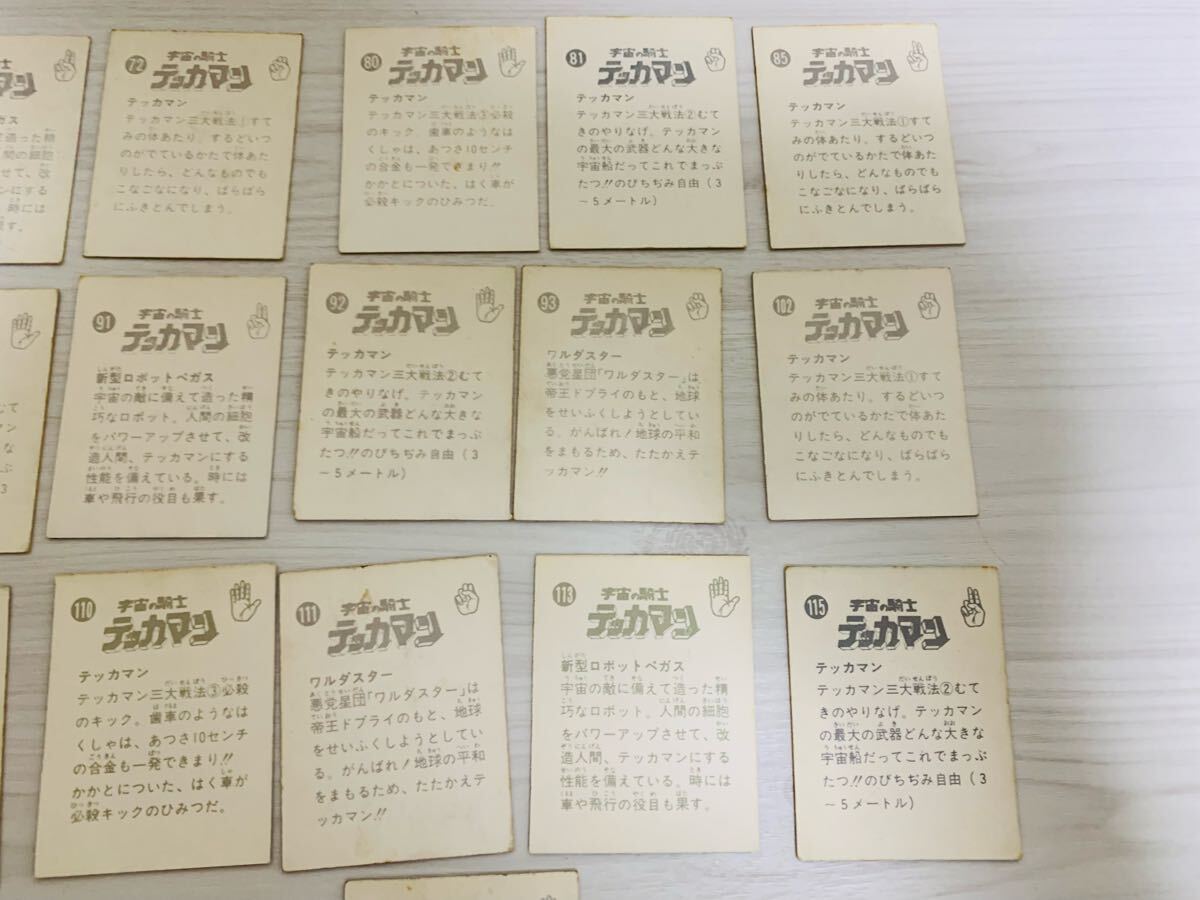 マン
ガス
て造った精
間の細胞
せて、改
マンにする
時には
す。
72
宇宙の騎士
テッカマン
テッカマン
テッカマン三大戦法①すて
みの体あたり。するどいつ
のがでているかたで体あた
りしたら、どんなものでも
こなごなになり、ばらばら
にふきとんでしまう。
80
宇宙の騎士
テッカマン
テッカマン
テッカマン三大戦法③必殺
のキック。歯車のようなは
くしゃは、あつさ10センチ
の合金も一発できまり!!
かかとについた、はく車が
必殺キックのひみつだ。
81
宇宙の騎士
テッカマン
テッカマン
テッカマン三大戦法②むて
きのやりなげ。テッカマン
の最大の武器どんな大きな
宇宙船だってこれでまっぷ
たつ!!のびちぢみ自由(3
~5メートル)
85
宇宙の騎士
テッカマン
テッカマン
テッカマン三大戦法①すて
みの体あたり。するどいつ
のがでているかたで体あた
りしたら、どんなものでも
こなごなになり、ばらばら
にふきとんでしまう。
むて
マン
きな
ぷ
3
91
宇宙の騎士
テッカマン
新型ロボットペガス
宇宙の敵に備えて造った精
巧なロボット。人間の細胞
をパワーアップさせて、改
造人間、テッカマンにする
性能を備えている。時には
車や飛行の役目も果す。
92
宇宙の騎士
テッカマン
テッカマン
テッカマン三大戦法②むて
きのやりなげ。テッカマン
の最大の武器どんな大きな
宇宙船だってこれでまっぷ
たつ!!のびちぢみ自由(3
~5メートル)
93
宇宙の騎士
テッカマン
ワルダスター
悪党星団「ワルダスター」は
帝王ドブライのもと、地球
をせいふくしようとしてい
る。がんばれ!地球の平和
をまもるため、たたかえテ
ッカマン!!
102
宇宙の騎士
テッカマン
テッカマン
テッカマン三大戦法①すて
みの体あたり。するどいつ
のがでているかたで体あた
りしたら、どんなものでも
こなごなになり、ばらばら
にふきとんでしまう。
110
宇宙の騎士
テッカマン
テッカマン
テッカマン三大戦法③必殺
のキック。歯車のようなは
くしゃは、あつさ10センチ
の合金も一発できまり!!
かかとについた、はく車が
必殺キックのひみつだ。
111
宇宙の騎士
テッカマン
ワルダスター
悪党星団「ワルダスター」は
帝王ドブライのもと、地球
をせいふくしようとしてい
る。がんばれ!地球の平和
をまもるため、たたかえテ
ッカマン!!
113
宇宙の騎士
テッカマン
新型ロボットペガス
宇宙の敵に備えて造った精
巧なロボット。人間の細胞
をパワーアップさせて、改
造人間、テッカマンにする
性能を備えている。時には
車や飛行の役目も果す。
115
宇宙の騎士
テッカマン
テッカマン
テッカマン三大戦法②むて
きのやりなげ。テッカマン
の最大の武器どんな大きな
宇宙船だってこれでまっぷ
たつ!!のびちぢみ自由(3
~5メートル)